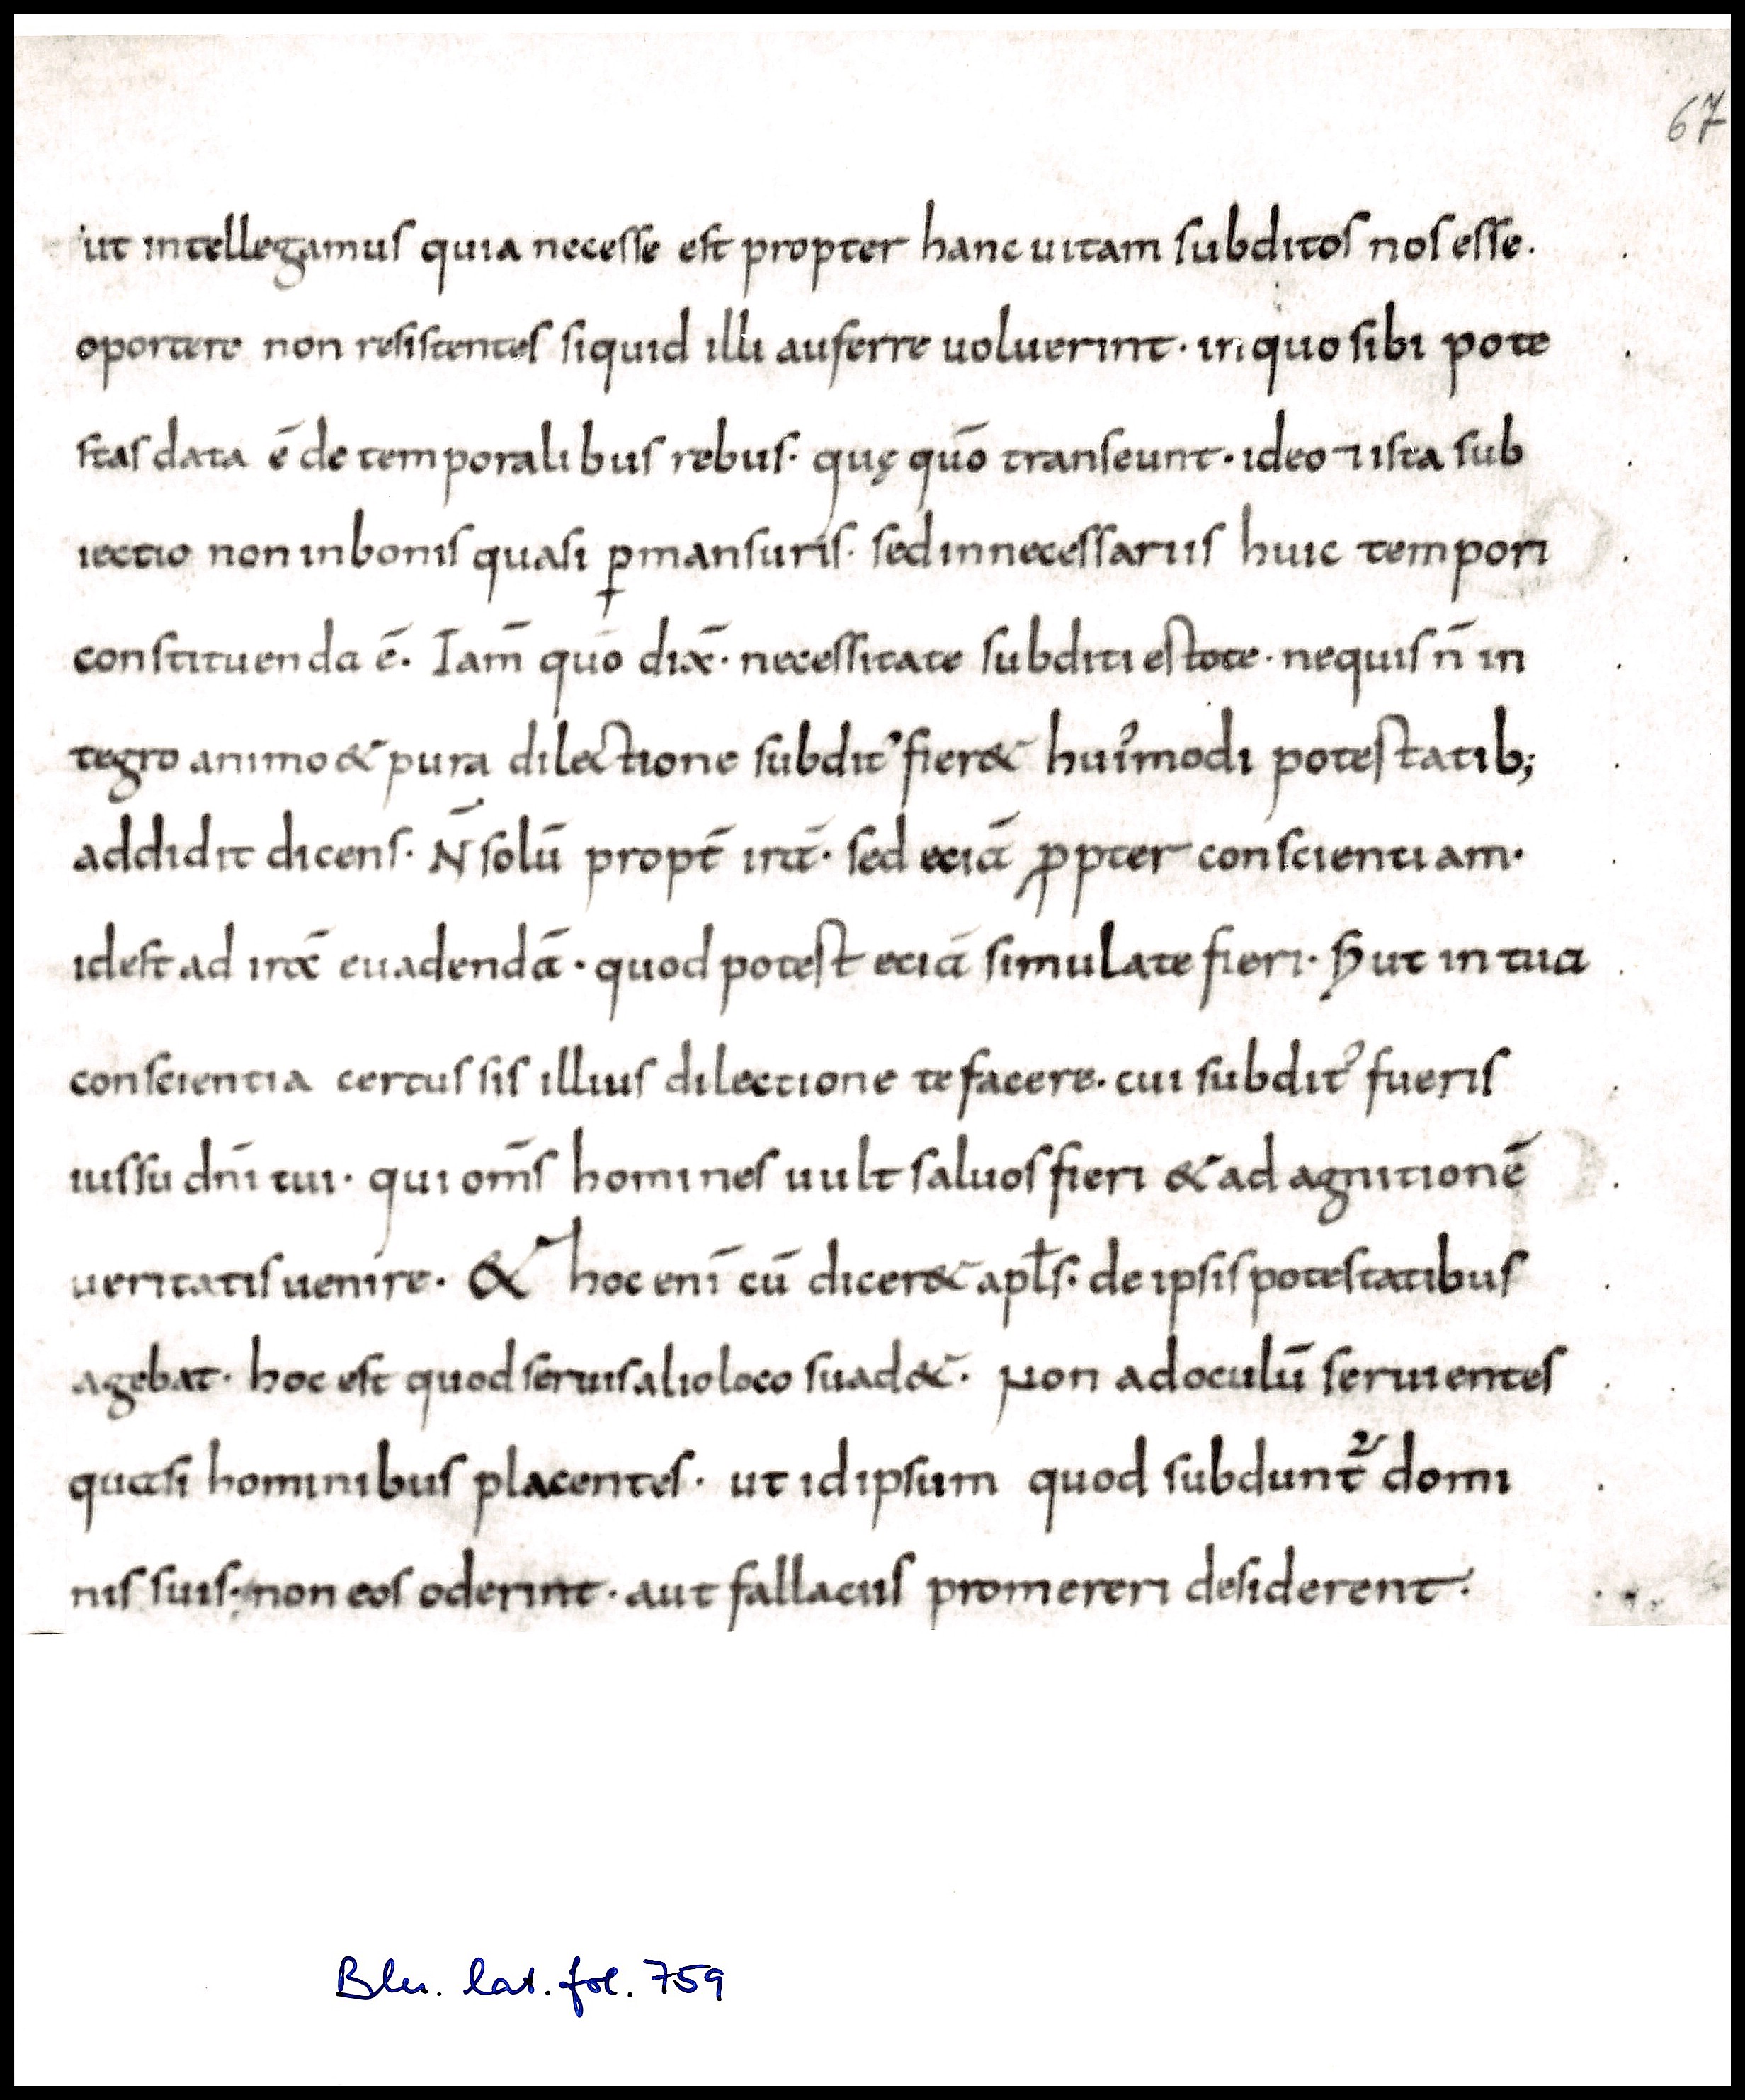 67
ut intellegamus quia necesse est propter hanc uitam subditos nos esse.
oportere non resistentes siquid illi auferre uoluerint· in quo sibi pote
stas data ē de temporalibus rebus· quę quō transeunt· ideo ⁊ ista sub
iectio non in bonis quasi ꝑmansuris· sed in necessariis huic tempori
constituenda ē. Iam̄ quō dix̄· necessitate subditi estote· nequis n̄ in
tegro animo & pura dilectione subdit᾽ fier& hui᾽modi potestatib;
addidit dicens· N̄ solū propt̄ irā· sed eciā ꝓpter conscientiam·
idest ad irā euadendā· quod potest eciā simulate fieri· S; ut in tua
conscientia certus sis illius dilectione te facere· cui subdit᾽ fueris
iussu dn̄i tui· qui om̄s homines uult saluos fieri & ad agnitionē
ueritatis uenire· & hoc enī cū dicer& apl̄s· de ipsis potestatibus
agebat· hoc est quod seruis alio loco suad&· Non ad oculū seruientes
quasi hominibus placentes· ut id ipsum quod subdunt᷑ domi
nis suis· non eos oderint· aut fallaciis promereri desiderent·
Bln. lat. fol. 759